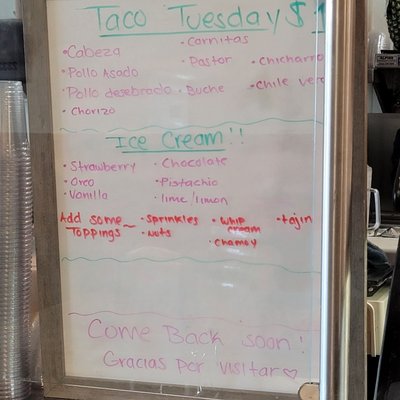 Taco Tuesday $1
• Cabeza • Carnitas
• Pollo Asado • Pastor • Chicharro
• Pollo desebrado • Buche • Chile ver
• Chorizo
Ice Cream!!
• Strawberry • Chocolate
• Oreo • Pistachio
• Vanilla • lime/limon
Add some ~ • Sprinkles • Whip cream • tajin
Toppings • Nuts • Chamoy
Come Back soon!
Gracias por visitar